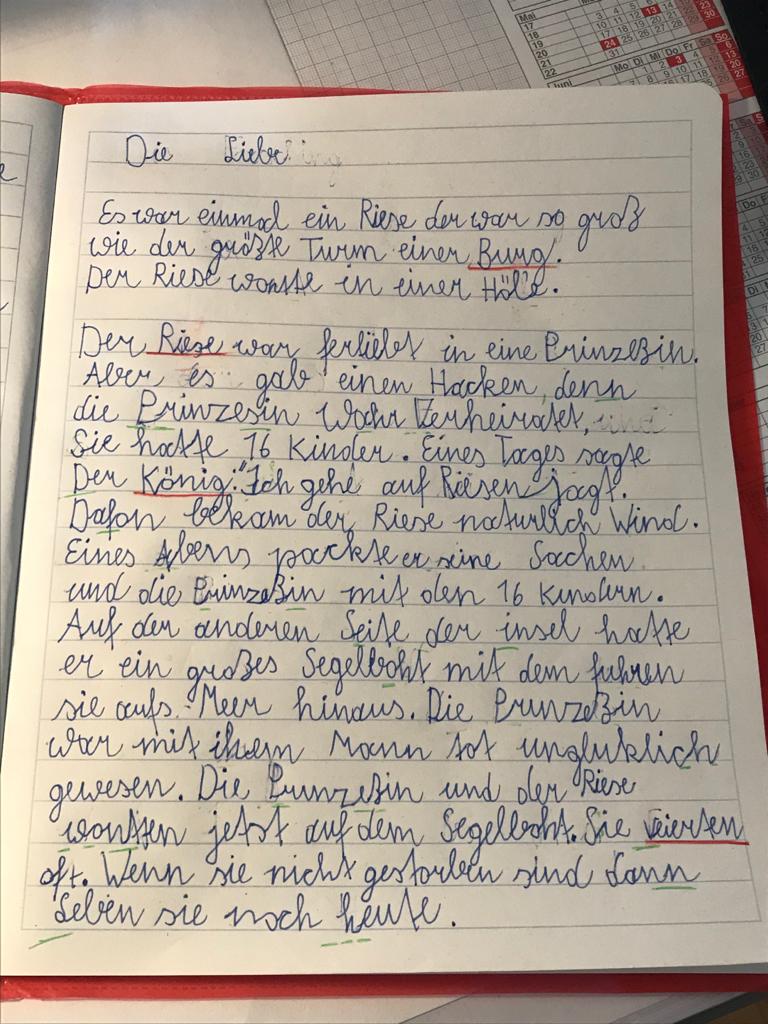 Mai
17
18
19
20
21
22
Mo Di Mi Do Fr Sa So
Juni
Die Liebe
Es war einmal ein Riese der war so groß
wie der größte Turm einer Burg.
Der Riese wonte in einer Höle.
Der Riese war ferliebt in eine Prinzeßin.
Aber es gab einen Hacken, denn
die Prinzesin wahr Verheiratet,
Sie hatte 16 Kinder. Eines Tages sagte
Der König: "Ich gehe auf Riesen jagt.
Dafon bekam der Riese natürlich Wind.
Eines Abens packte er seine Sachen
und die Prinzeßin mit den 16 Kindern.
Auf der anderen Seite der insel hatte
er ein großes Segelboht mit dem fuhren
sie aufs Meer hinaus. Die Prinzeßin
war mit ihrem Mann tot unglüklich
gewesen. Die Prinzeßin und der Riese
wonten jetzt auf dem Segelboht. Sie veierten
oft. Wenn sie nicht gestorben sind dann
Leben sie noch heute.